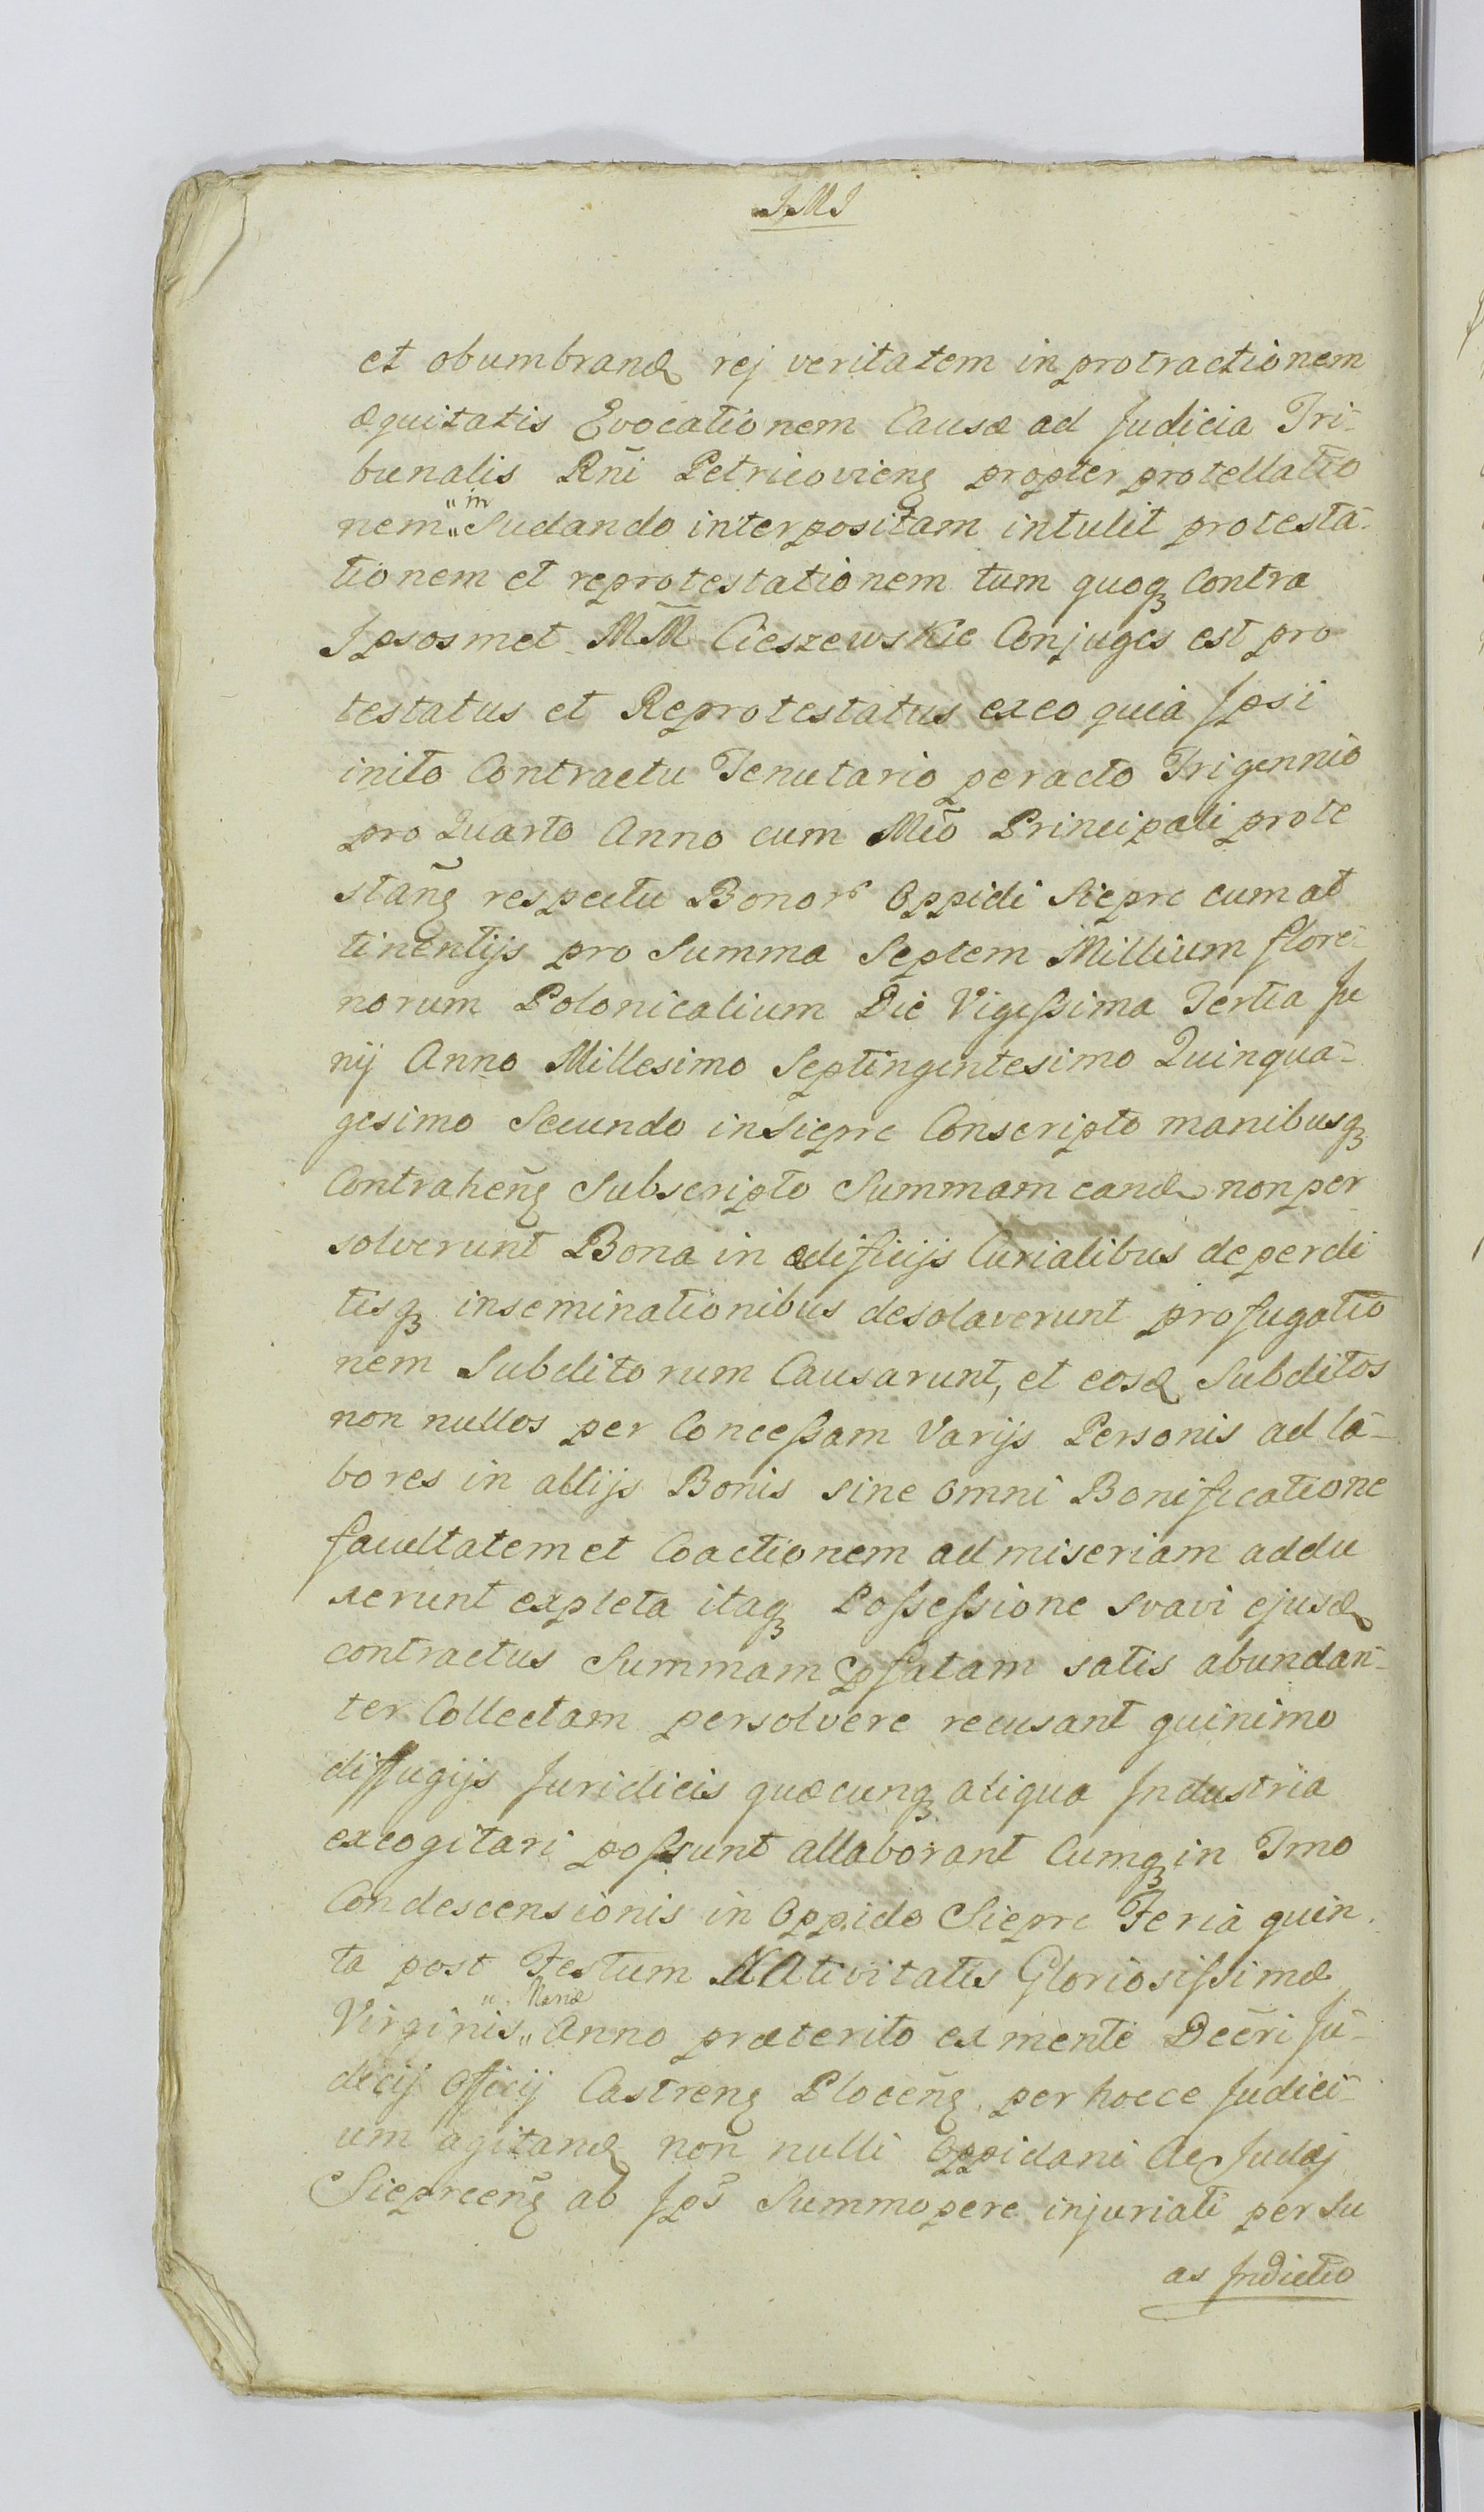 JMJ
et obumbrand rej veritatem in protractionem
æquitatis Evocationem Causæ ad Judicia Tri-
bunalis Rñi Petricovieng propter protellatio
nem „in„ Sudando interpositam intulit protesta-
tionem et reprotestationem tum quoqꝫ contra
Ipsosmet MM̃ Cieszewskie Conjuges est pro
testatus et Reprotestatus exeo quia Ipsi
inito Contractu Tenutario peracto Trigennio
pro Quarto Anno cum Mc̃o Principali prote
stañg respectu Bonorͬ Oppidi Siepre cum at
tinentijs pro Summa Septem Millium flore-
norum Polonicalium Die Vigeſsima Tertia Ju
nij Anno Millesimo Septingentesimo Quinqua-
gesimo Secundo in Siepre Conscripto manibusqꝫ
Contraheñg Subscripto Summam eand non per
solverunt Bona in ædificijs Curialibus deperdi
tisqꝫ inseminationibus desolaverunt profugatio
nem Subditorum Causarunt, et eosd Subditos
non nullos per Conceſsam Varijs Personis ad la-
bores in allijs Bonis sine omni Bonificatione
facultatem et Coactionem ad miseriam addu
xerunt expleta itaqꝫ Poſseſsione svavi ejusd
contractus Summam ꝓfatam satis abundan-
ter Collectam persolvere recusant quinimo
diffugijs Juridicis quæcunqꝫ aliqua Industria
excogitari poſsunt allaborant Cumqꝫ in Tmo
Condescensionis in Oppido Siepre Feria quin-
ta post Festum NAtivitatis Gloriosiſsimæ
Virginis „Mariæ„ Anno præterito ex mente Decr̃i Ju-
dicij Officij Castreng Ploceñg per hocce Judici-
um agitand non nulli Oppidani Ac Judæj
Siepreeñg ab Ips̃ Summopere injuriati per Su
as Indictio